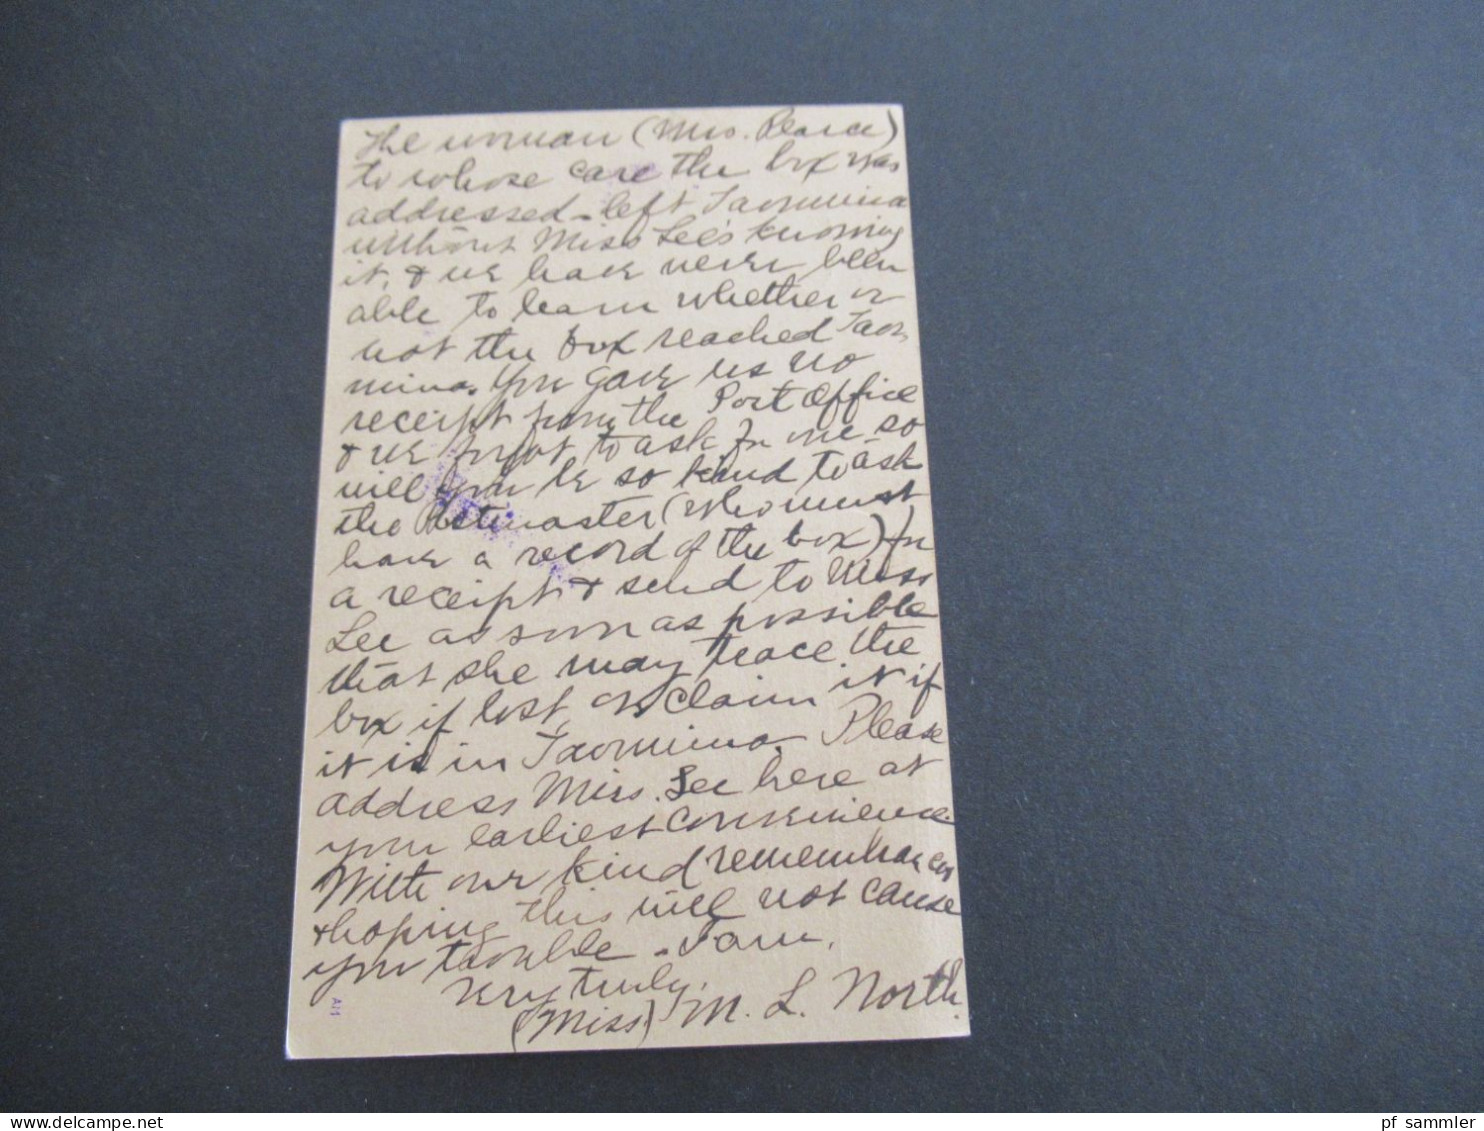 The woman (Mrs. Pearce)
to whose care the box was
addressed - left Taormina
without Miss Lee's knowing
it, & we have never been
able to learn whether or
not the box reached Taor
mina. You gave us no
receipt from the Post Office
& we forgot to ask for one so
will you be so kind to ask
the Postmaster (who must
have a record of the box) for
a receipt & send to Miss
Lee as soon as possible
that she may trace the
box if lost, or claim it if
it is in Taormina. Please
address Miss. Lee here at
your earliest convenience.
With our kind remembrances
& hoping this will not cause
you trouble - I am,
very truly,
(Miss) M. L. North.
A/1
pf sammler